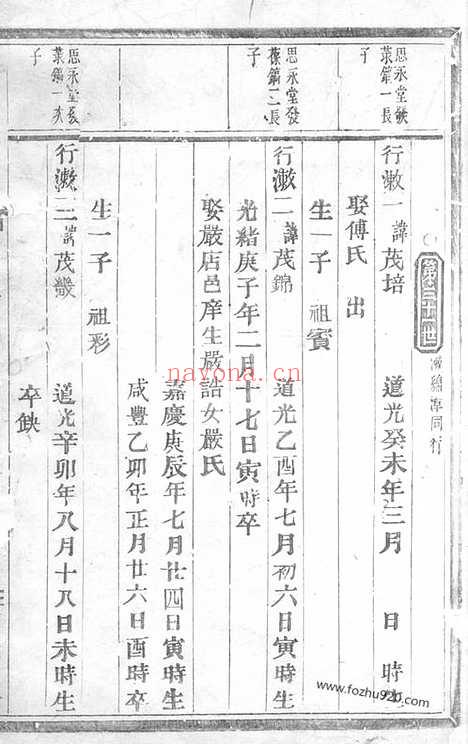 第三十世
思永堂發
葉鎬一長
子
行潄一諱茂培 道光癸未年三月 日 時生
娶傅氏 出
生一子 祖賓
思永堂發
葆鎬二長
子
行潄二諱茂錦 道光乙酉年七月初六日寅時生
光緒庚子年二月十七日寅時卒
娶嚴店邑庠生嚴誥女嚴氏
嘉慶庚辰年七月廿四日寅時生
咸豐乙卯年正月廿六日酉時卒
生一子 祖彩
思永堂發
葉鎬一次
子
行潄三諱茂 道光辛卯年八月十八日未時生
卒缺
nayona.cn
www.fozhu920.com